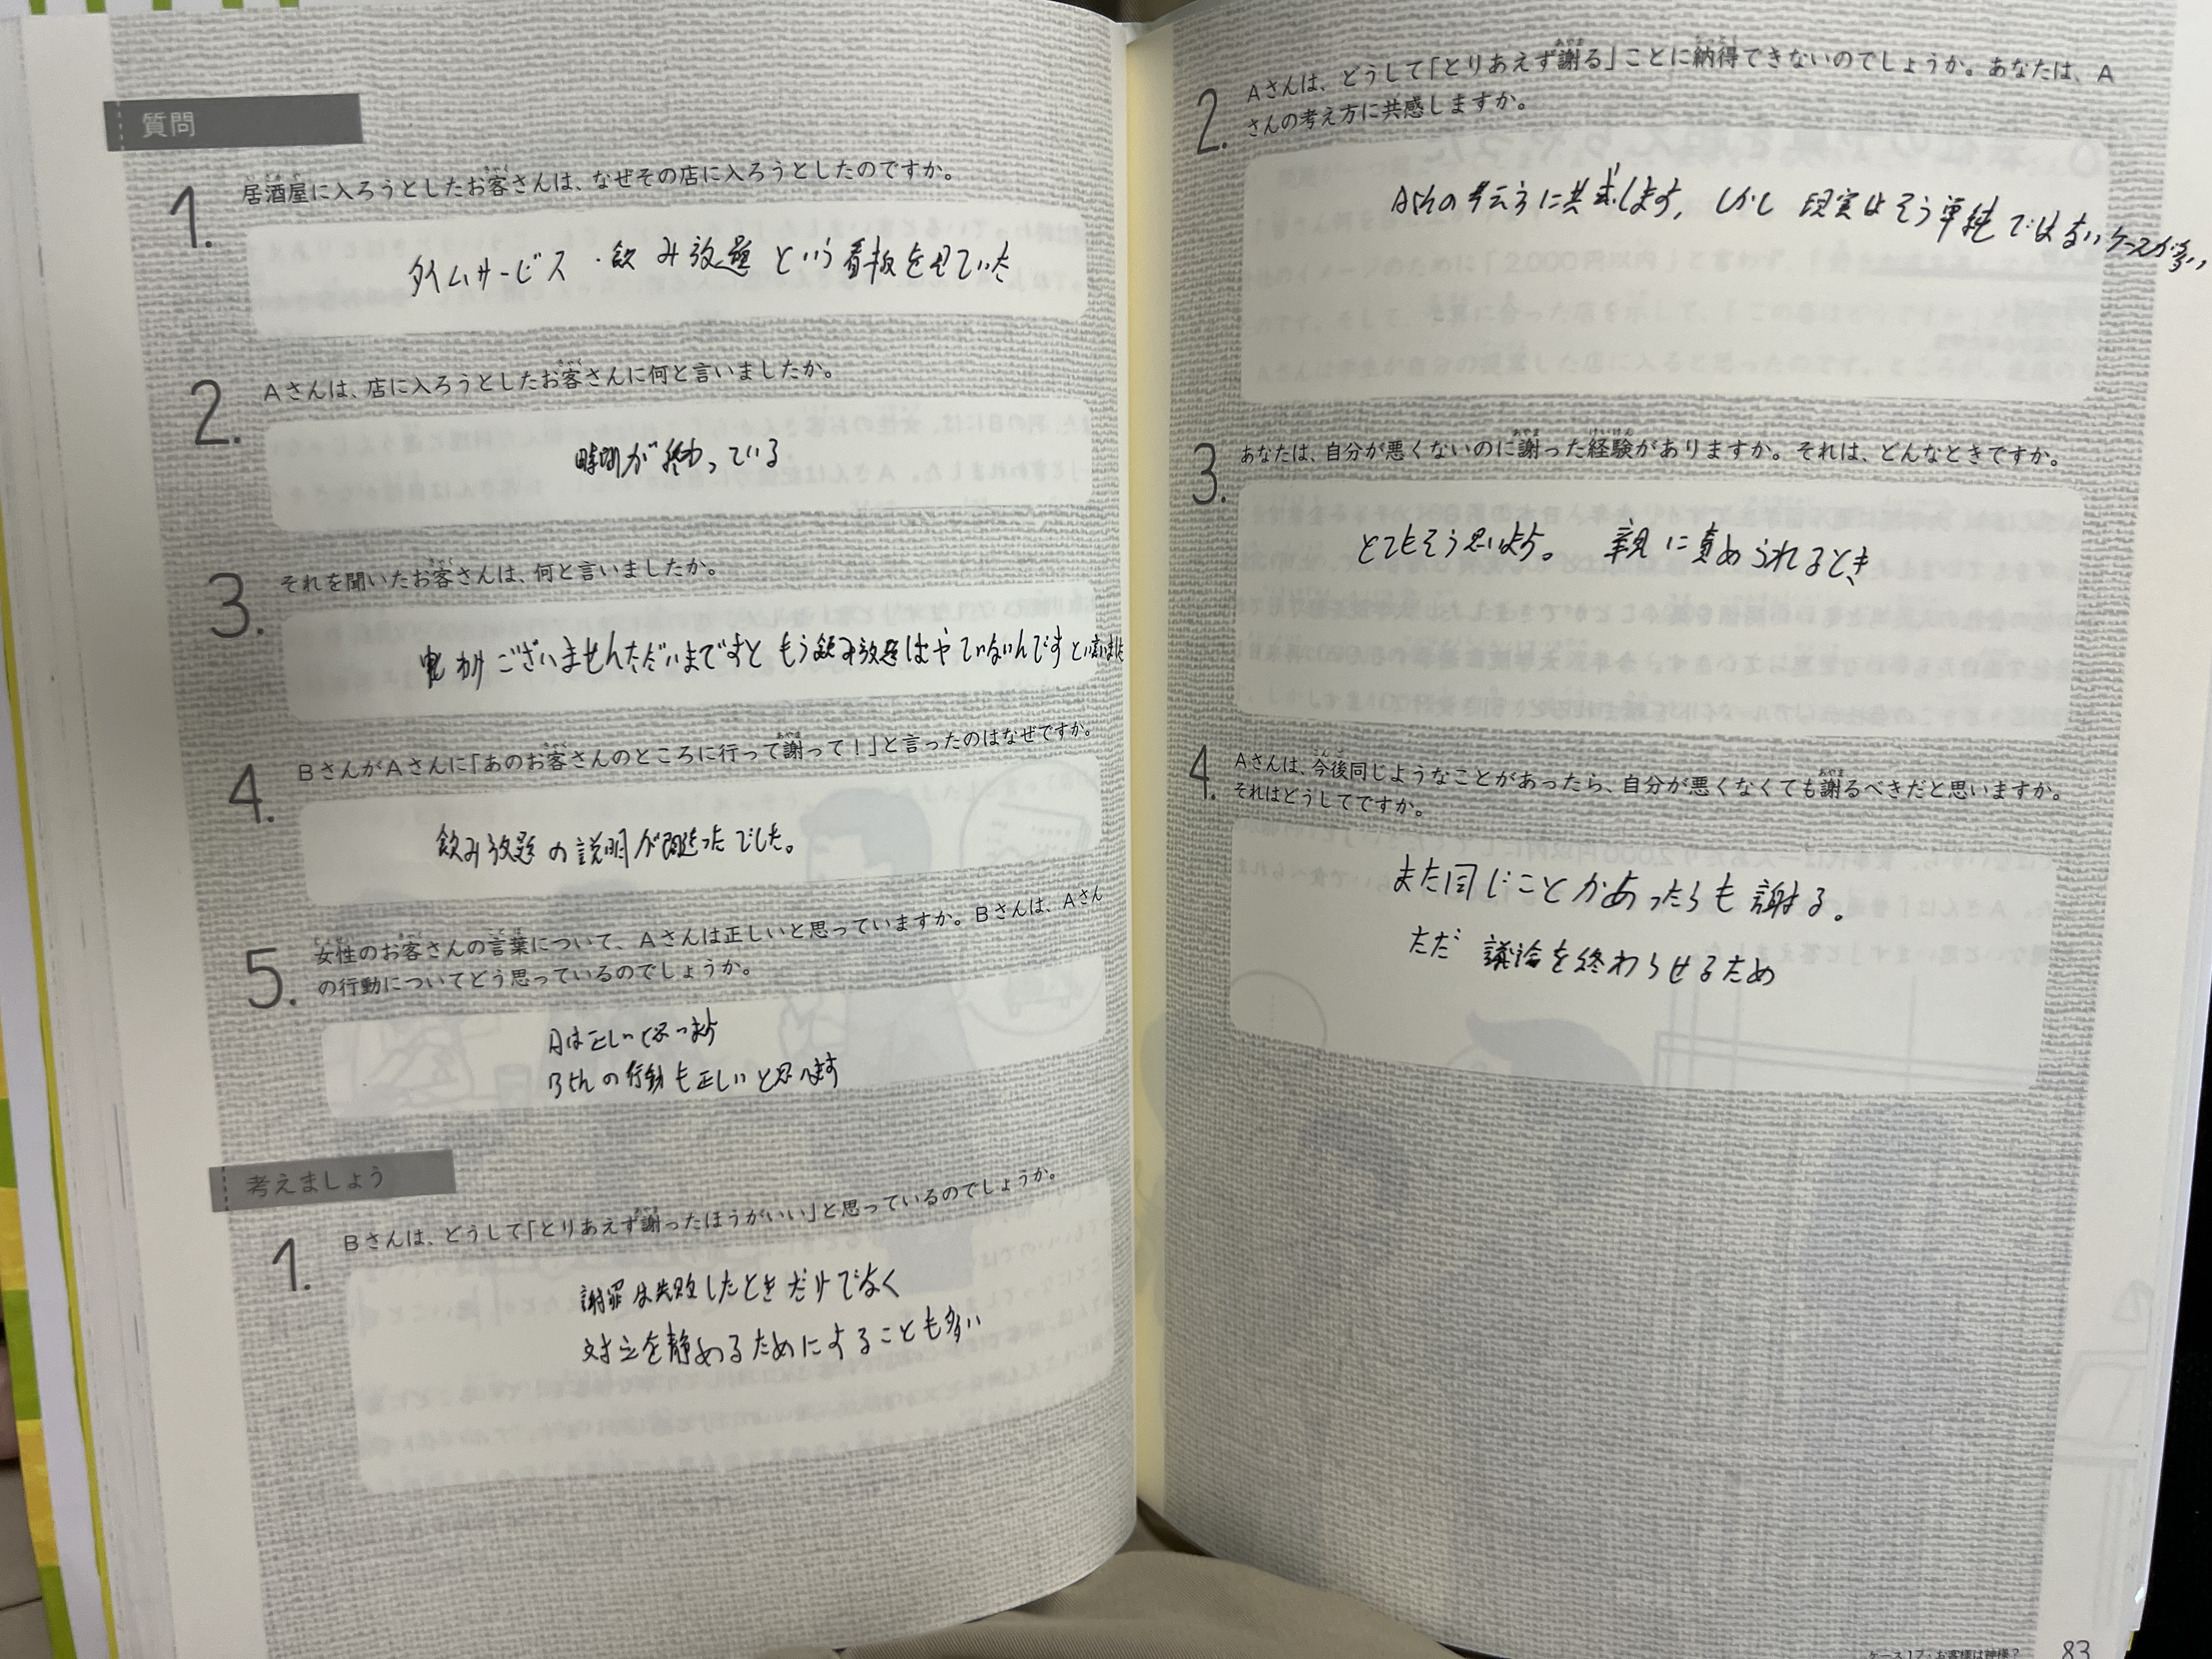 質問
1. 居酒屋に入ろうとしたお客さんは、なぜその店に入ろうとしたのですか。
タイムサービス・飲み放題という看板を
2. Aさんは、店に入ろうとしたお客さんに何と言いましたか。
時間が終わっている
3. それを聞いたお客さんは、何と言いましたか。
ございませんただいまですともう飲み放題はやていないんですと
4. BさんがAさんに「あのお客さんのところに行って謝って!」と言ったのはなぜですか。
飲み放題の説明が でした。
5. 女性のお客さんの言葉について、Aさんは正しいと思っていますか。Bさんは、Aさん
の行動についてどう思っているのでしょうか。
Aは
Bさんの行動も正しいと
考えましょう
1. Bさんは、どうして「とりあえず謝ったほうがいい」と思っているのでしょうか。
謝罪は失敗したときだけでなく
対立を静めるためにすることも多い
2. Aさんは、どうして「とりあえず謝る」ことに納得できないのでしょうか。あなたは、A
さんの考え方に共感しますか。
Aさんの考え方に共感します、しかし現実はそう単純ではない
3. あなたは、自分が悪くないのに謝った経験がありますか。それは、どんなときですか。
とてもそう思います。親に責められるとき
4. Aさんは、今後同じようなことがあったら、自分が悪くなくても謝るべきだと思いますか。
それはどうしてですか。
また同じことがあったらも謝る。
ただ議論を終わらせるため
ケース17:お客様は神様?
83